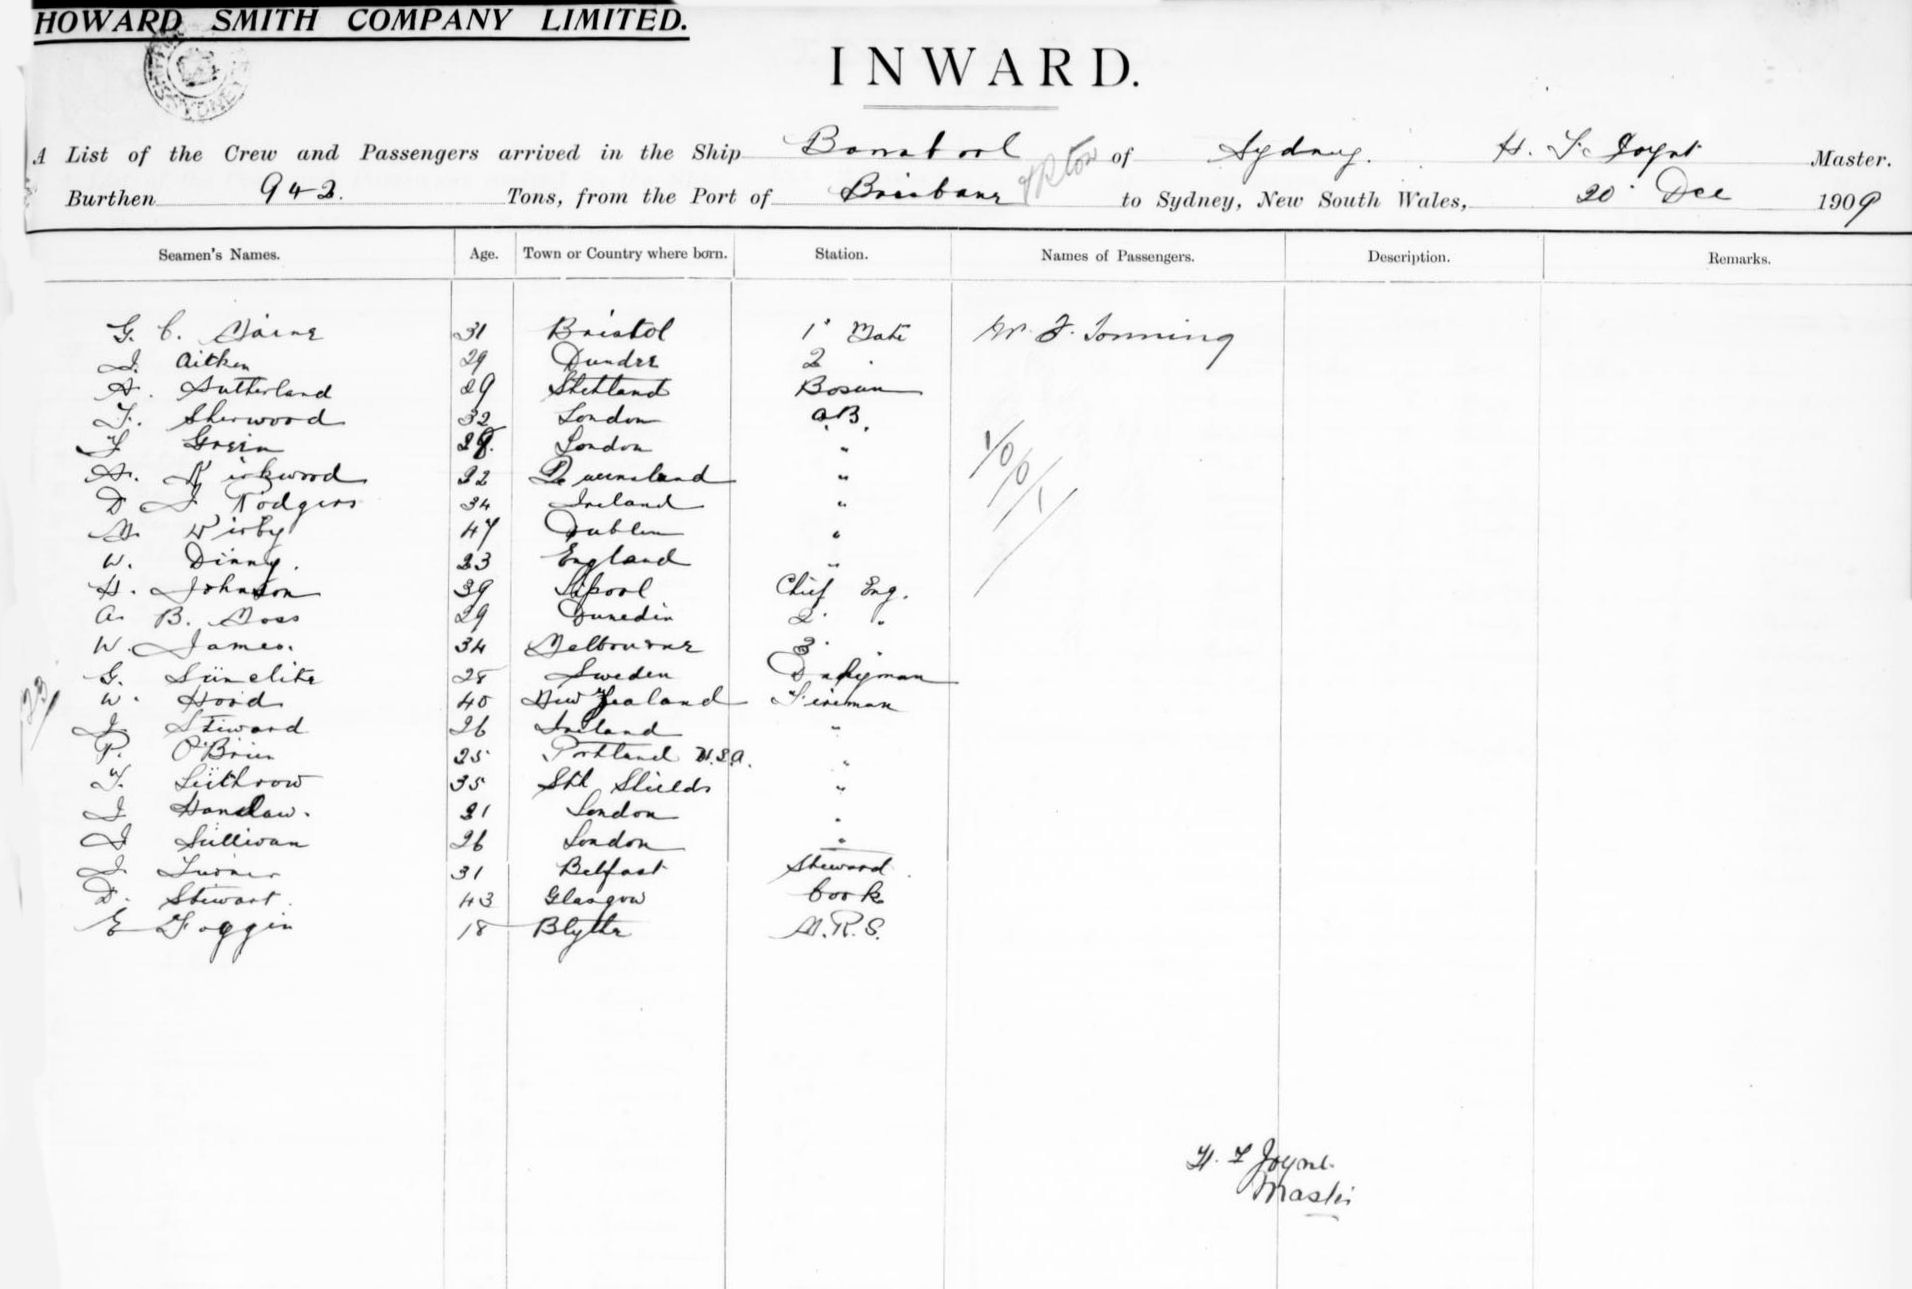 HOWARD SMITH COMPANY LIMITED.
SYDNEY
INWARD.
A List of the Crew and Passengers arrived in the Ship Barrabool of Sydney. H. F. Joynt Master.
Burthen 942. Tons, from the Port of Brisbane to Sydney, New South Wales, 20 Dec 1909
Seamen's Names. Age. Town or Country where born. Station. Names of Passengers. Description. Remarks.
G. C. 31 Bristol 1 Mate F. Tonning
J. Aitken 29 Dundee 2
A. Sutherland 29 Shetland Bosun
F. Sherwood 32 London A.B.
Green London "
A. Kirkwood 22 Queensland "
D J Rodgers 34 Ireland "
Kirby 47 Dublin "
W. Dinny. 23 England "
H. Johnson 39 L'pool Chief Eng.
A. B. Moss 29 Dunedin 2 "
W. James. 34 Melbourne 3
G. 28 Sweden Dnkyman
W. Hood 40 New Zealand Fireman
J. Steward 26 Ireland "
P. O'Brien 25 Portland U.S.A. "
T. 35 Sth Shields "
J Hanslaw. 21 London "
J Sullivan 26 London "
J. Turner 31 Belfast Steward
D. Stewart. 43 Glasgow Cook
E Foggin 18 Blyth M.R.S.
1/0/0/1/
23
H. F Joynt
Master